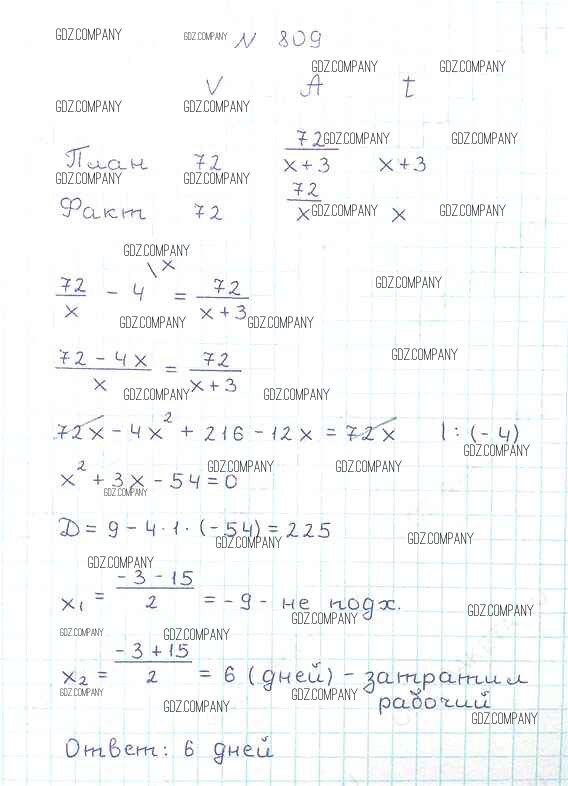 GDZ.COMPANY GDZ.COMPANY N 809
GDZ.COMPANY GDZ.COMPANY
V A t
GDZ.COMPANY GDZ.COMPANY
План 72 72/(x+3) x+3
GDZ.COMPANY GDZ.COMPANY
GDZ.COMPANY GDZ.COMPANY
Факт 72 72/x x
GDZ.COMPANY GDZ.COMPANY
GDZ.COMPANY
72/x - 4 \x = 72/(x+3)
GDZ.COMPANY
GDZ.COMPANY GDZ.COMPANY
(72-4x)/x = 72/(x+3)
GDZ.COMPANY
GDZ.COMPANY GDZ.COMPANY
72x - 4x² + 216 - 12x = 72x |:(-4)
GDZ.COMPANY
GDZ.COMPANY GDZ.COMPANY
x² + 3x - 54 = 0
GDZ.COMPANY
D = 9 - 4·1·(-54) = 225
GDZ.COMPANY GDZ.COMPANY
GDZ.COMPANY
x₁ = (-3-15)/2 = -9 - не подх.
GDZ.COMPANY GDZ.COMPANY
GDZ.COMPANY GDZ.COMPANY
x₂ = (-3+15)/2 = 6 (дней) - затратил
рабочий
GDZ.COMPANY GDZ.COMPANY
GDZ.COMPANY GDZ.COMPANY
Ответ: 6 дней